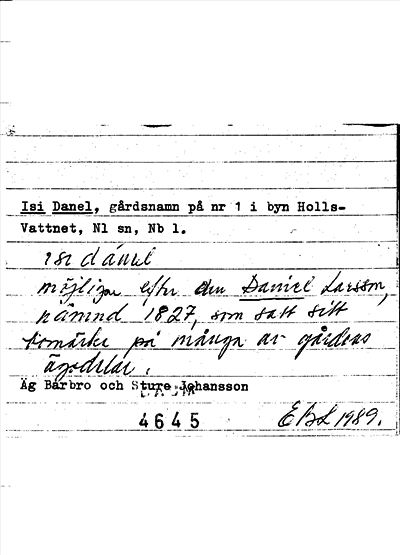 Isi Danel, gårdsnamn på nr 1 i byn Holls-
Vattnet, Nl sn, Nb l.
isi dánel
möjligen efter den Daniel Larsson,
nämnd 1827, som satt sitt
bomärke på många av gårdens
ägodelar.
Äg Barbro och Sture Johansson
4645 EbL 1989.